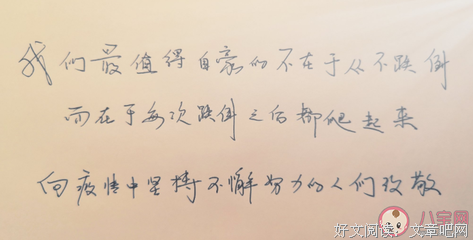 我们最值得自豪的不在于从不跌倒
而在于每次跌倒之后都爬起来
向疫情中坚持不懈努力的人们致敬
八宝网
好文阅读：文章吧网